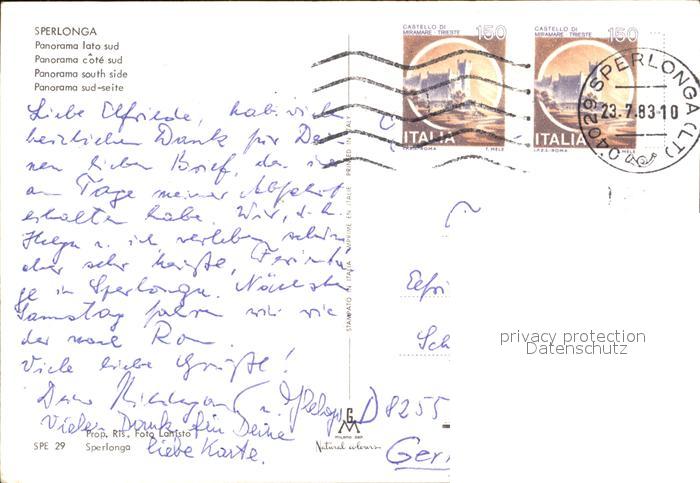 SPERLONGA
Panorama lato sud
Panorama côté sud
Panorama south side
Panorama sud-seite
Liebe Elfriede, hab viele
herzlichen Dank für Dei-
nen lieben Brief, den ich
am Tage meiner Abfahrt
erhalten habe. Wir, d.h.
Helga u. ich verleben schöne
aber sehr heiße Ferienta-
ge in Sperlonga. Nächsten
Samstag fahren wir wie-
der nach Rom.
Viele liebe Grüße!
Dein u. Helga
Vielen Dank für Deine
liebe Karte.
Prop. Ris. Foto
SPE 29 Sperlonga
STAMPATO IN ITALIA IMPRIMÉ EN ITALIE PRINTED IN ITALY
G M
MILANO
Natural colours
CASTELLO DI
MIRAMARE · TRIESTE
150
ITALIA
I.P.Z.S. ROMA T. MELE
CASTELLO DI
MIRAMARE · TRIESTE
150
ITALIA
I.P.Z.S. ROMA MELE
04029 SPERLONGA (LT)
23.7.83-10
Elfri
Sch
D 8255
Ger
privacy protection
Datenschutz